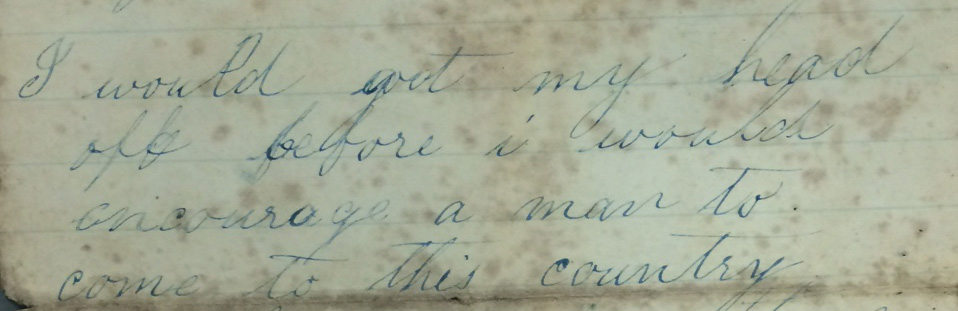 I would got my head
off before i would
encourage a man to
come to this country